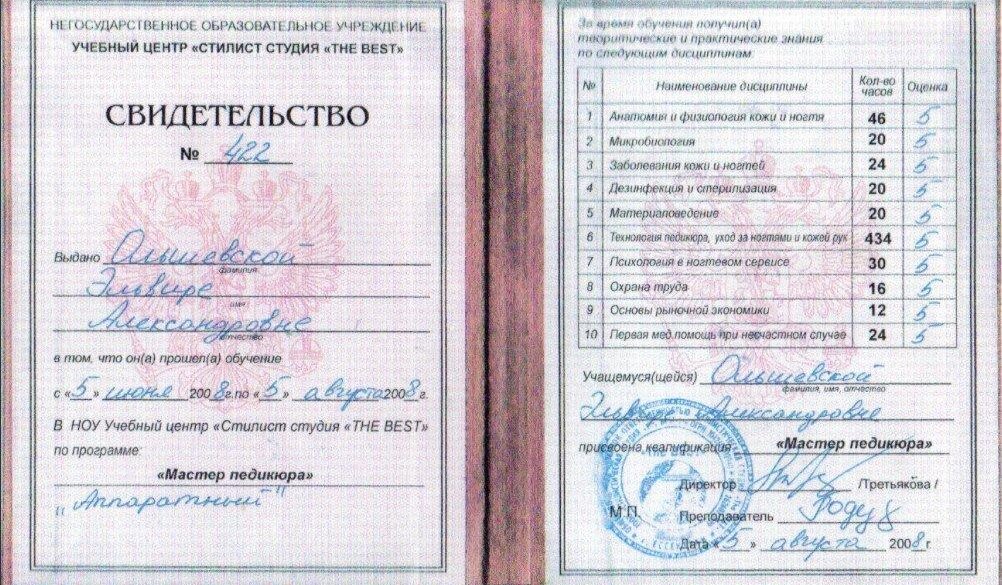 НЕГОСУДАРСТВЕННОЕ ОБРАЗОВАТЕЛЬНОЕ УЧРЕЖДЕНИЕ
УЧЕБНЫЙ ЦЕНТР «СТИЛИСТ СТУДИЯ «THE BEST»
СВИДЕТЕЛЬСТВО
№ 422
Выдано Ольшевской
фамилия
Эльвире
имя
Александровне
отчество
в том, что он(а) прошел(а) обучение
с «5» июня 2008г. по «5» августа 2008г.
В НОУ Учебный центр «Стилист студия «THE BEST»
по программе:
«Мастер педикюра»
„Аппаратный"
За время обучения получил(а)
теоритические и практические знания
по следующим дисциплинам:
№ Наименование дисциплины Кол-во часов Оценка
1 Анатомия и физиология кожи и ногтя 46 5
2 Микробиология 20 5
3 Заболевания кожи и ногтей 24 5
4 Дезинфекция и стерилизация 20 5
5 Материаловедение 20 5
6 Технология педикюра, уход за ногтями и кожей рук 434 5
7 Психология в ногтевом сервисе 30 5
8 Охрана труда 16 5
9 Основы рыночной экономики 12 5
10 Первая мед.помощь при несчастном случае 24 5
Учащемуся(щейся) Ольшевской
фамилия, имя, отчество
Эльвире Александровне
присвоена квалификация «Мастер педикюра»
Директор /Третьякова /
М.П. Преподаватель
Дата «5» августа 2008г